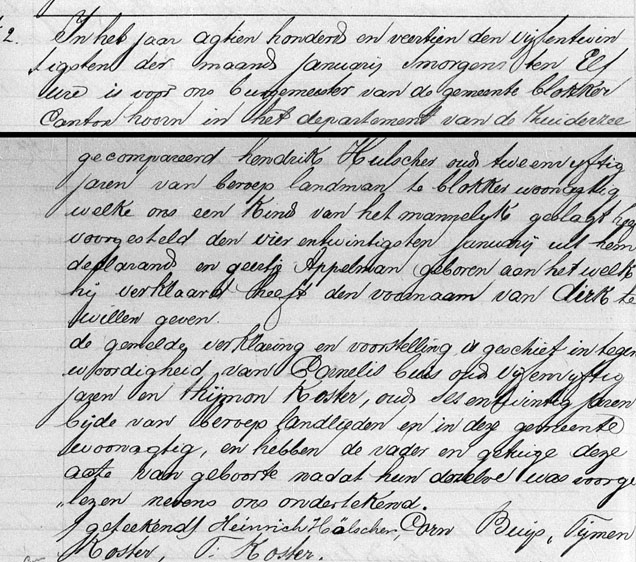 2. In het jaar agtien honderd en veertien den vijfentwin
tigsten der maand Januarij smorgens ten Elf
ure is voor ons burgemeester van de gemeente blokker
Canton hoorn in het departement van de Zuiderzee
gecompareerd hendrik Hulscher oud tweenvyftig
Jaren van beroep landman te blokker woonagtig
welke ons een Kind van het mannelyk geslagt heeft
voorgesteld den vier entwintigsten Januarij uit hem
declarand en geertje Appelman geboren aan het welk
hij verklaard heeft den voornaam van dirk te
willen geven.
de gemelde verklaring en voorstelling is geschiet in tegen
woordigheid van Cornelis buis oud vyfenvyftig
jaren en Thijmon Koster, oud ses entwintig Jaren
bijde van beroep landlieden en in deze gemeente
woonagtig, en hebben de vader en getuige deze
acte van geboorte nadat hun dezelve was voorge
„lezen nevens ons ondertekend.
/geteekend/ Heinrich Hälscher, Corn Buijs, Tijmen
Koster, T: Koster.